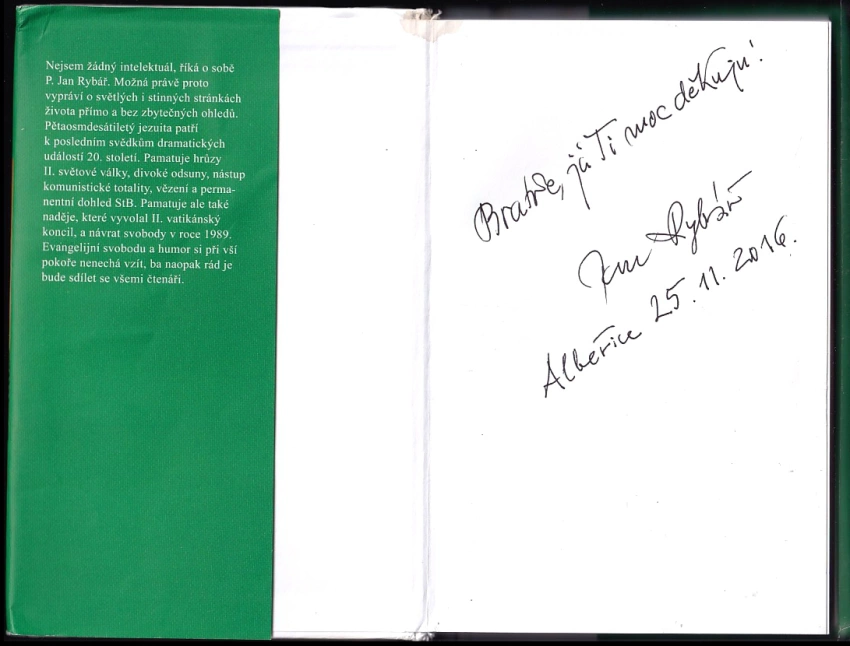 Nejsem žádný intelektuál, říká o sobě
P. Jan Rybář. Možná právě proto
vypráví o světlých i stinných stránkách
života přímo a bez zbytečných ohledů.
Pětaosmdesátiletý jezuita patří
k posledním svědkům dramatických
událostí 20. století. Pamatuje hrůzy
II. světové války, divoké odsuny, nástup
komunistické totality, vězení a perma-
nentní dohled StB. Pamatuje ale také
naděje, které vyvolal II. vatikánský
koncil, a návrat svobody v roce 1989.
Evangelijní svobodu a humor si při vší
pokoře nenechá vzít, ba naopak rád je
bude sdílet se všemi čtenáři.
Bratře, já Ti moc děkuju!
Jan Rybář
Albeřice 25.11.2016.